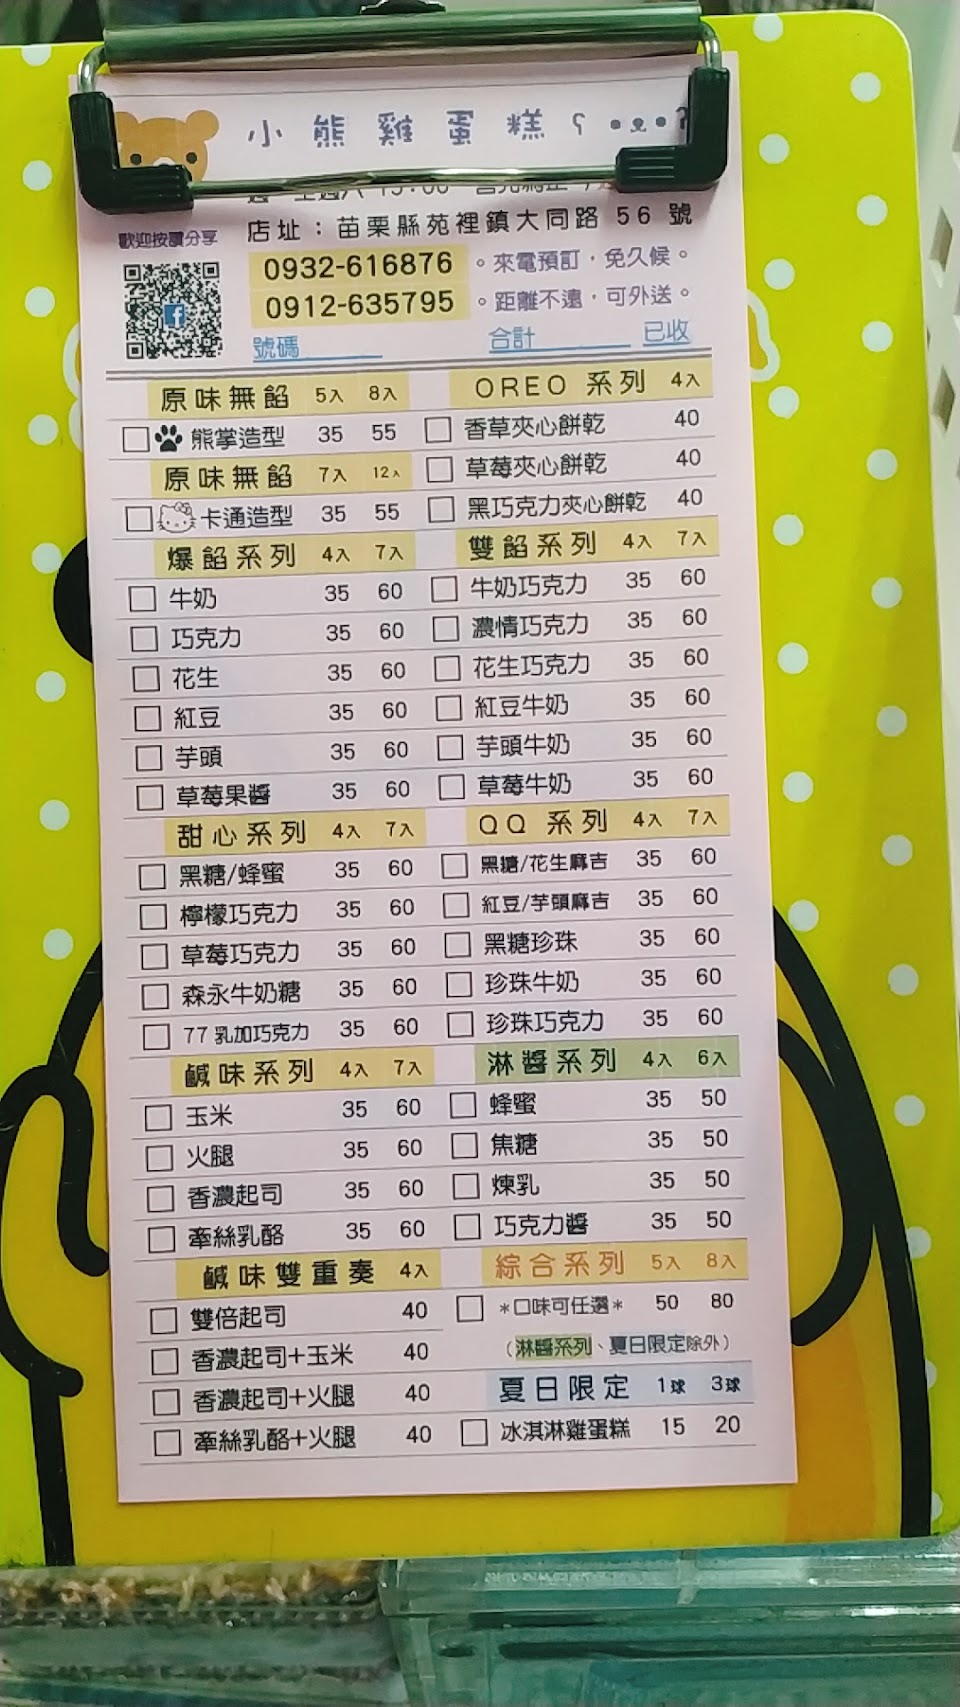 小熊雞蛋糕ʕ•ᴥ•ʔ
店址：苗栗縣苑裡鎮大同路 56 號
歡迎按讚分享
0932-616876 。來電預訂，免久候。
0912-635795 。距離不遠，可外送。
號碼______ 合計______ 已收
原味無餡 5入 8入
熊掌造型 35 55
原味無餡 7入 12入
卡通造型 35 55
爆餡系列 4入 7入
牛奶 35 60
巧克力 35 60
花生 35 60
紅豆 35 60
芋頭 35 60
草莓果醬 35 60
甜心系列 4入 7入
黑糖/蜂蜜 35 60
檸檬巧克力 35 60
草莓巧克力 35 60
森永牛奶糖 35 60
77乳加巧克力 35 60
鹹味系列 4入 7入
玉米 35 60
火腿 35 60
香濃起司 35 60
牽絲乳酪 35 60
鹹味雙重奏 4入
雙倍起司 40
香濃起司+玉米 40
香濃起司+火腿 40
牽絲乳酪+火腿 40
OREO 系列 4入
香草夾心餅乾 40
草莓夾心餅乾 40
黑巧克力夾心餅乾 40
雙餡系列 4入 7入
牛奶巧克力 35 60
濃情巧克力 35 60
花生巧克力 35 60
紅豆牛奶 35 60
芋頭牛奶 35 60
草莓牛奶 35 60
QQ 系列 4入 7入
黑糖/花生麻吉 35 60
紅豆/芋頭麻吉 35 60
黑糖珍珠 35 60
珍珠牛奶 35 60
珍珠巧克力 35 60
淋醬系列 4入 6入
蜂蜜 35 50
焦糖 35 50
煉乳 35 50
巧克力醬 35 50
綜合系列 5入 8入
*口味可任選* 50 80
（淋醬系列、夏日限定除外）
夏日限定 1球 3球
冰淇淋雞蛋糕 15 20